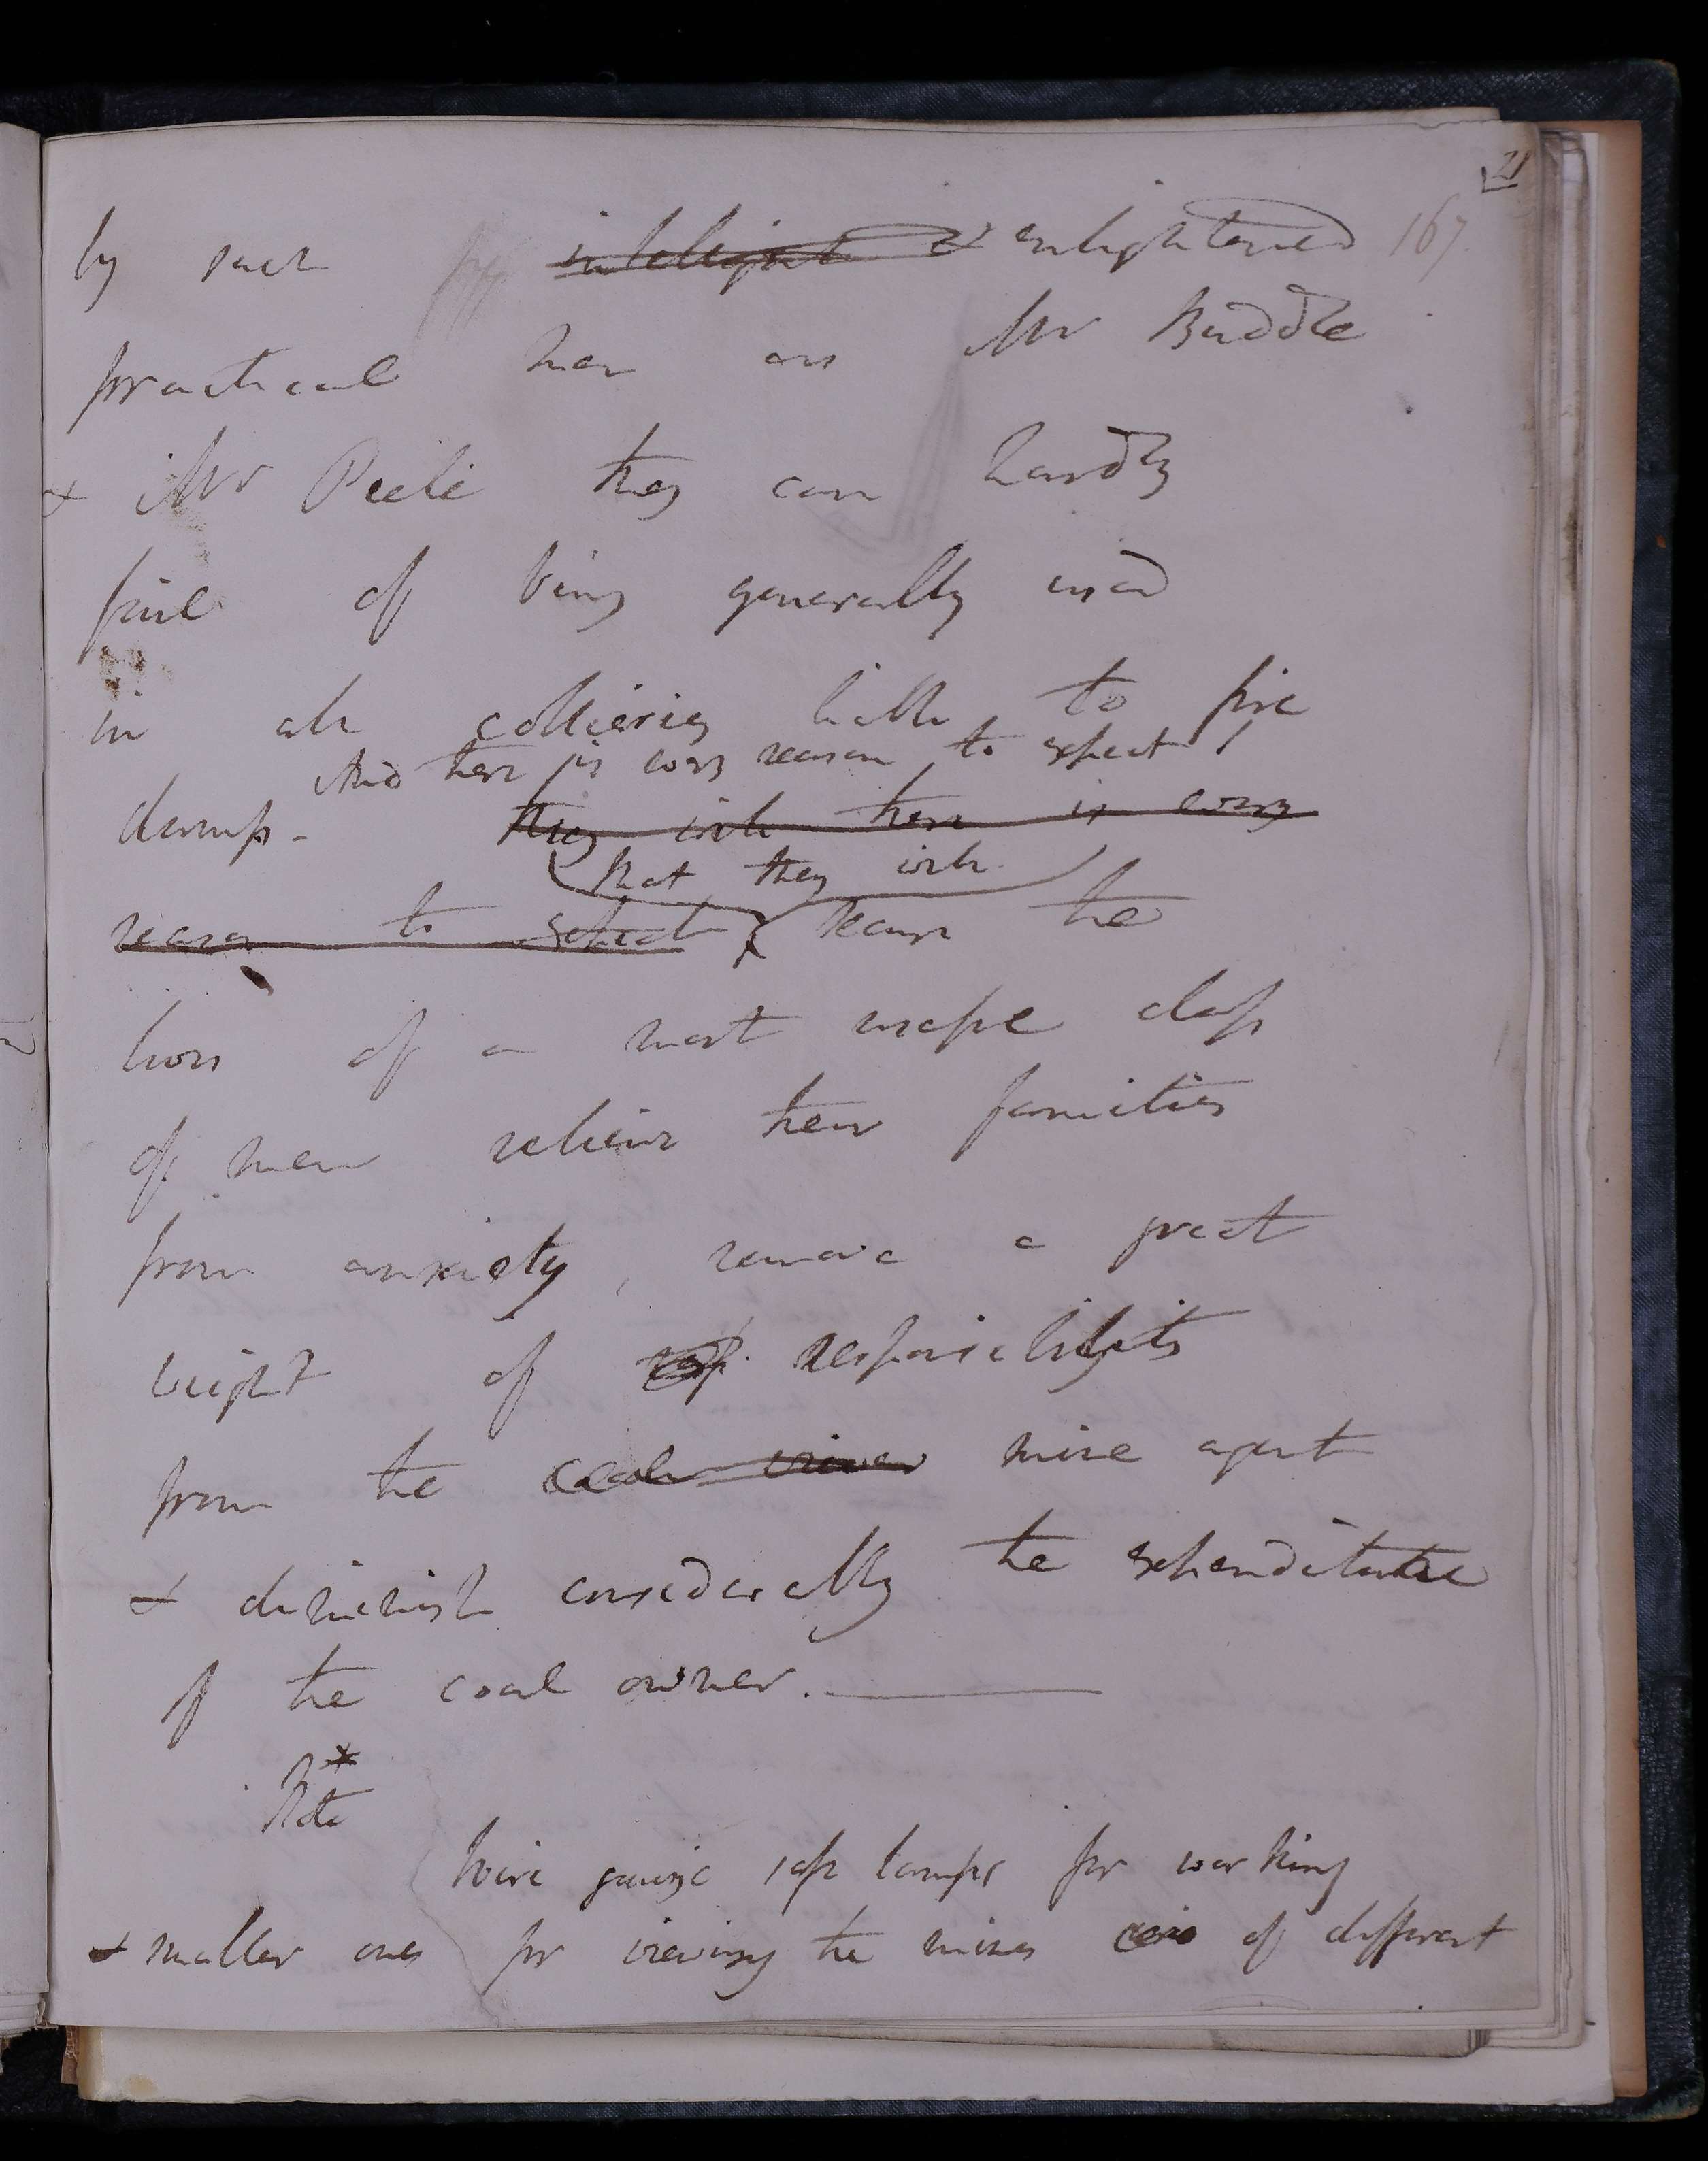 21
by such intelligent & enlightened 167
practical men as Mr Buddle
& Mr Peele they can hardly
fail of being generally used
in all collieries liable to fire
And there is every reason to expect
damp. they will there is every
that they will
reason to expect secure the
lives of a most useful class
of men relieve their families
from anxiety, remove a great
weight of resp responsibility
from the coal viewer mine agent
& diminish considerably the expenditure
of the coal owner.
*
Note
Wire gauze safe lamps for working
& smaller ones for viewing the mines of different